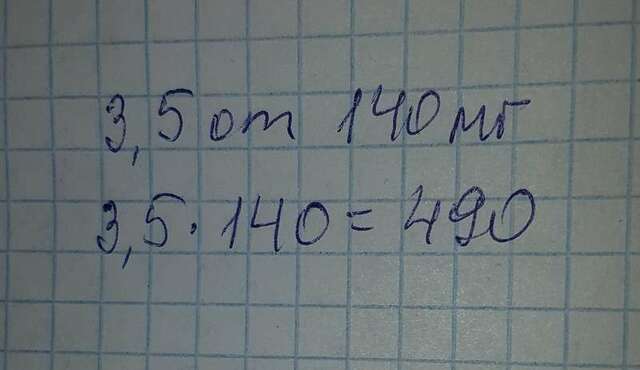 3,5 от 140 мг
3,5 · 140 = 490